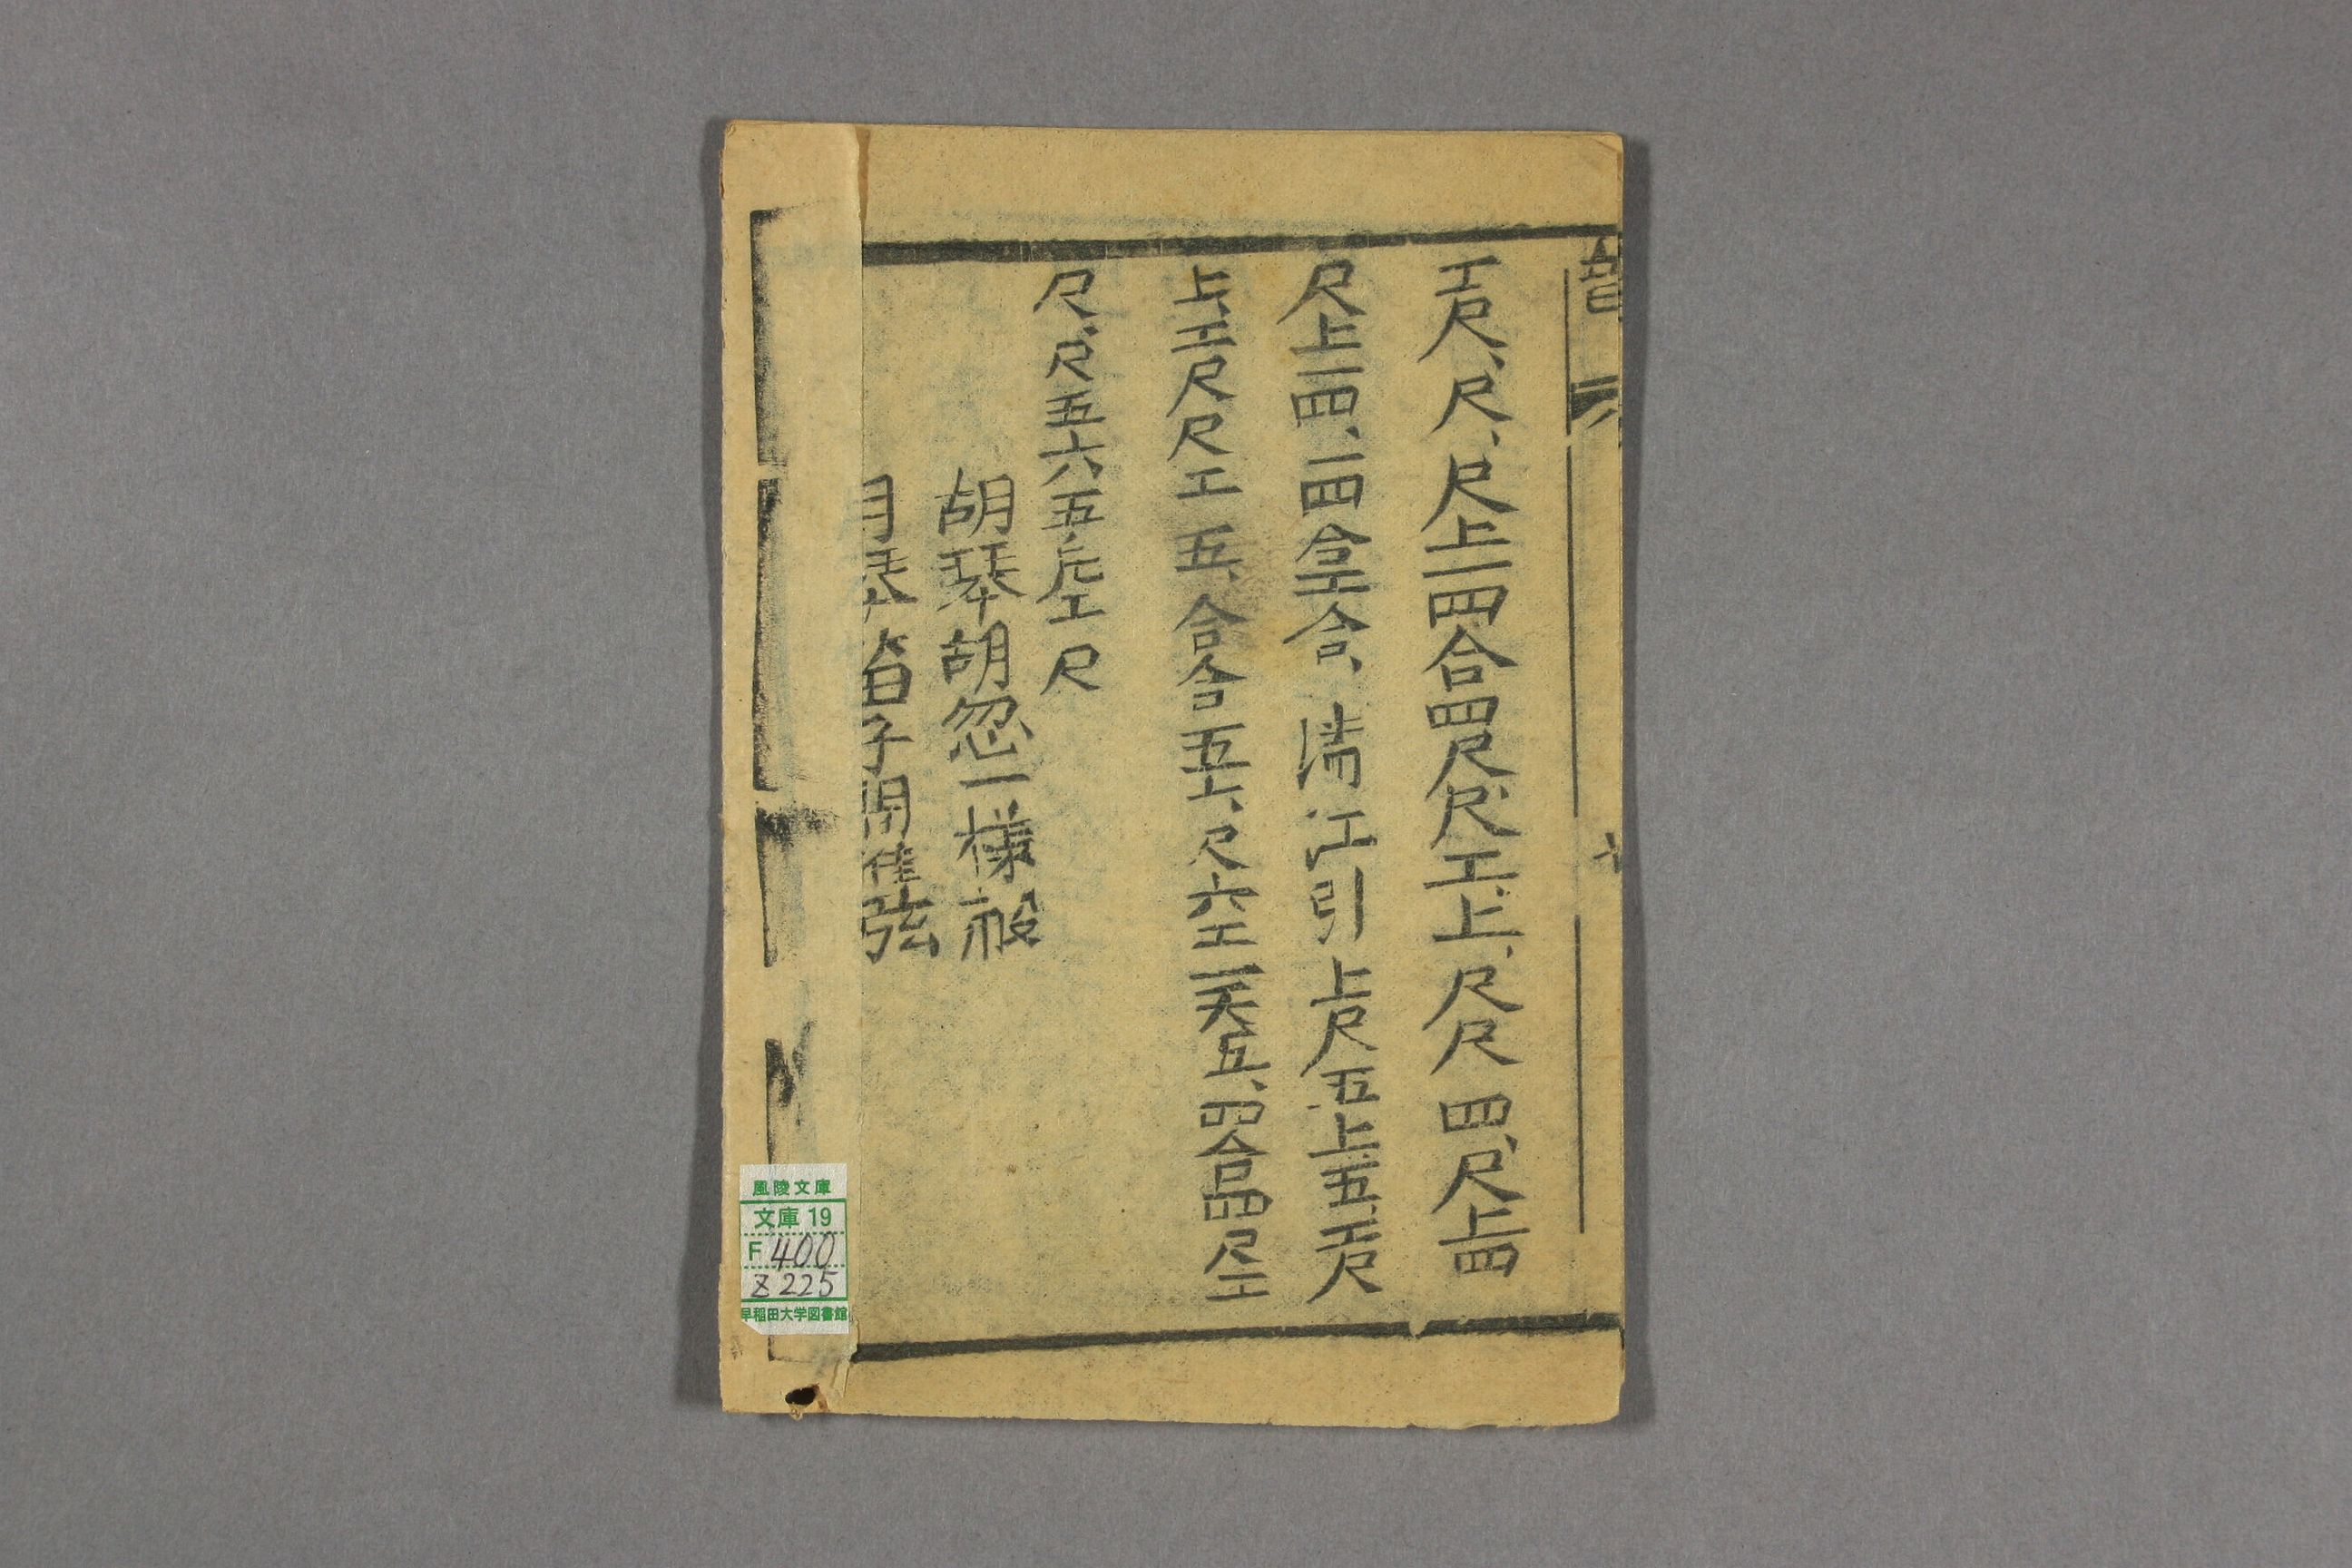 工尺、尺、尺上一四合四尺尺、工、上、尺尺四、尺上四
尺上一四、一四合工合、清江引上尺五上五、工尺
上、工尺尺工五、合合五六、尺六工一天五、四合四尺工
尺、尺五六五尺工尺
胡琴胡忽一樣
月琴笛子開准弦
風陵文庫
文庫 19
F 400
Z 225
早稲田大学図書館